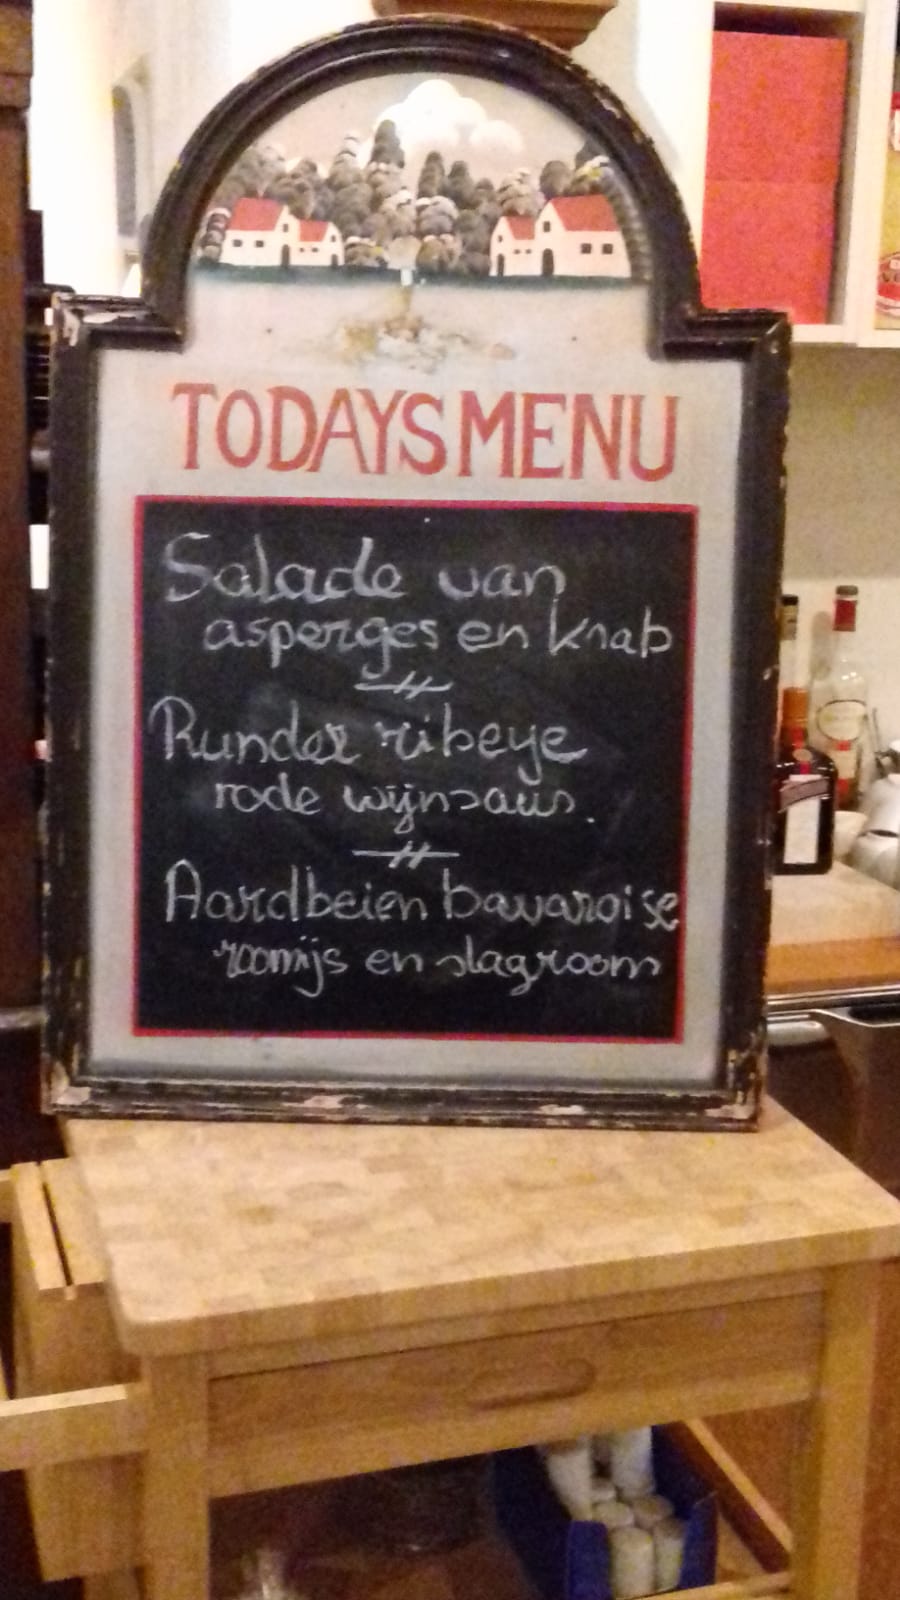 TODAYS MENU
Salade van
asperges en krab
Runder ribeye
rode wijnsaus.
Aardbeien bavaroise
roomijs en slagroom